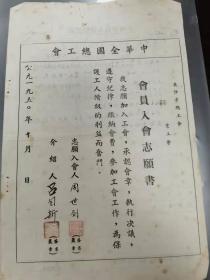 中華全國總工會
長沙市總工會
會員入會志願書
我志願加入工會，承認會章，執行决議，
遵守紀律，繳納會費，參加工會工作，為保
護工人階級的利益而奮鬥。
志願入會人 周世劍
介紹人
公元一九五〇年十月 日